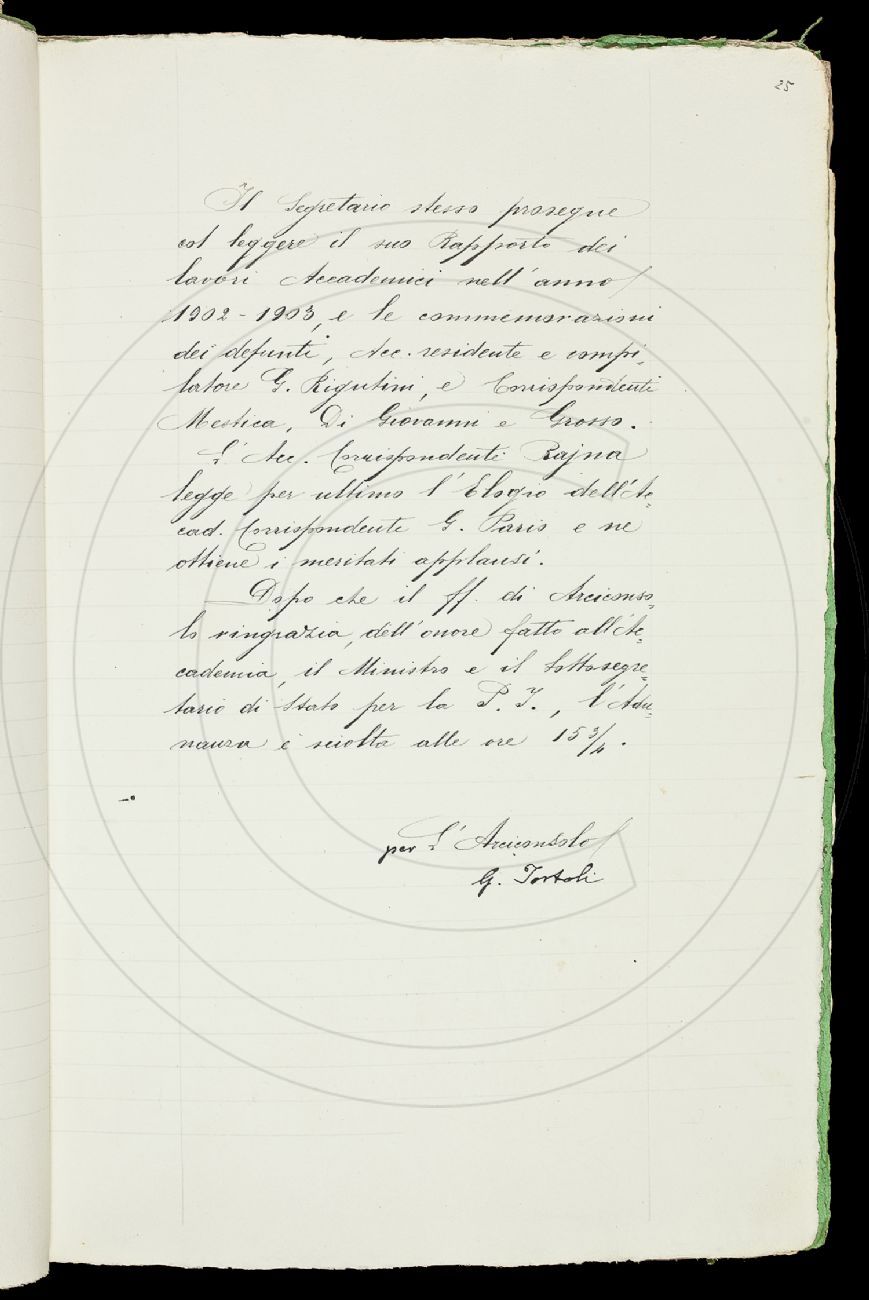 25
Il Segretario stesso prosegue
col leggere il suo Rapporto dei
lavori Accademici nell'anno
1902-1903, e le commemorazioni
dei defunti, Acc. residente e compi=
latore G. Rigutini, e Corrispondenti
Mestica, Di Giovanni e Grosso.
L'Acc. Corrispondente Rajna
legge per ultimo l'Elogio dell'Ac=
cad. Corrispondente G. Paris e ne
ottiene i meritati applausi.
Dopo che il ff. di Arciconso=
lo ringrazia, dell'onore fatto all'Ac=
cademia, il Ministro e il Sottosegre=
tario di Stato per la P. I., l'Adu=
nanza è sciolta alle ore 15 3/4.
per L'Arciconsolo
G. Tortoli